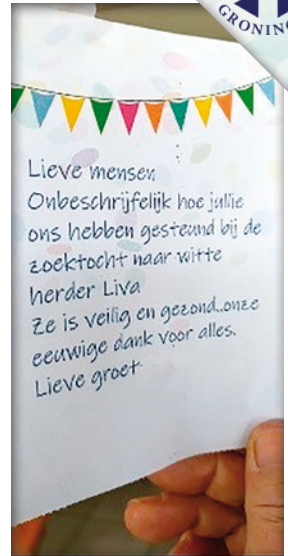 GRONING
Lieve mensen
Onbeschrijfelijk hoe jullie
ons hebben gesteund bij de
zoektocht naar witte
herder Liva
Ze is veilig en gezond..onze
eeuwige dank voor alles.
Lieve groet